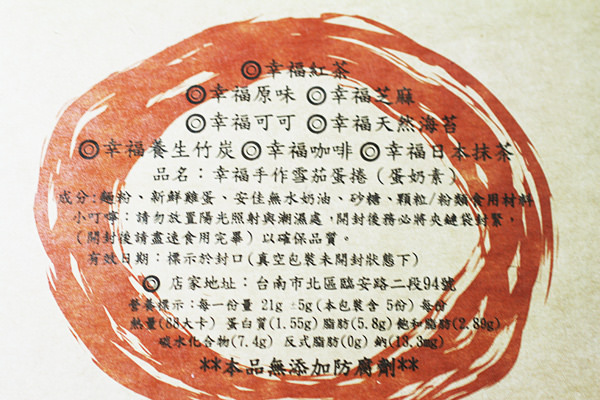 ◎幸福紅茶
◎幸福原味 ◎幸福芝麻
◎幸福可可 ◎幸福天然海苔
◎幸福養生竹炭 ◎幸福咖啡 ◎幸福日本抹茶
品名：幸福手作雪茄蛋捲（蛋奶素）
成分:麵粉、新鮮雞蛋、安佳無水奶油、砂糖、顆粒/粉類食用材料
小叮嚀：請勿放置陽光照射與潮濕處，開封後務必將夾鏈袋封緊，
（開封後請盡速食用完畢）以確保品質。
有效日期：標示於封口(真空包裝未開封狀態下)
◎ 店家地址：台南市北區臨安路二段94號
營養標示：每一份量 21g ±5g(本包裝含 5份) 每份
熱量(88大卡) 蛋白質(1.55g) 脂肪(5.8g) 飽和脂肪(2.89g)
碳水化合物(7.4g) 反式脂肪(0g) 鈉(13.3mg)
**本品無添加防腐劑**